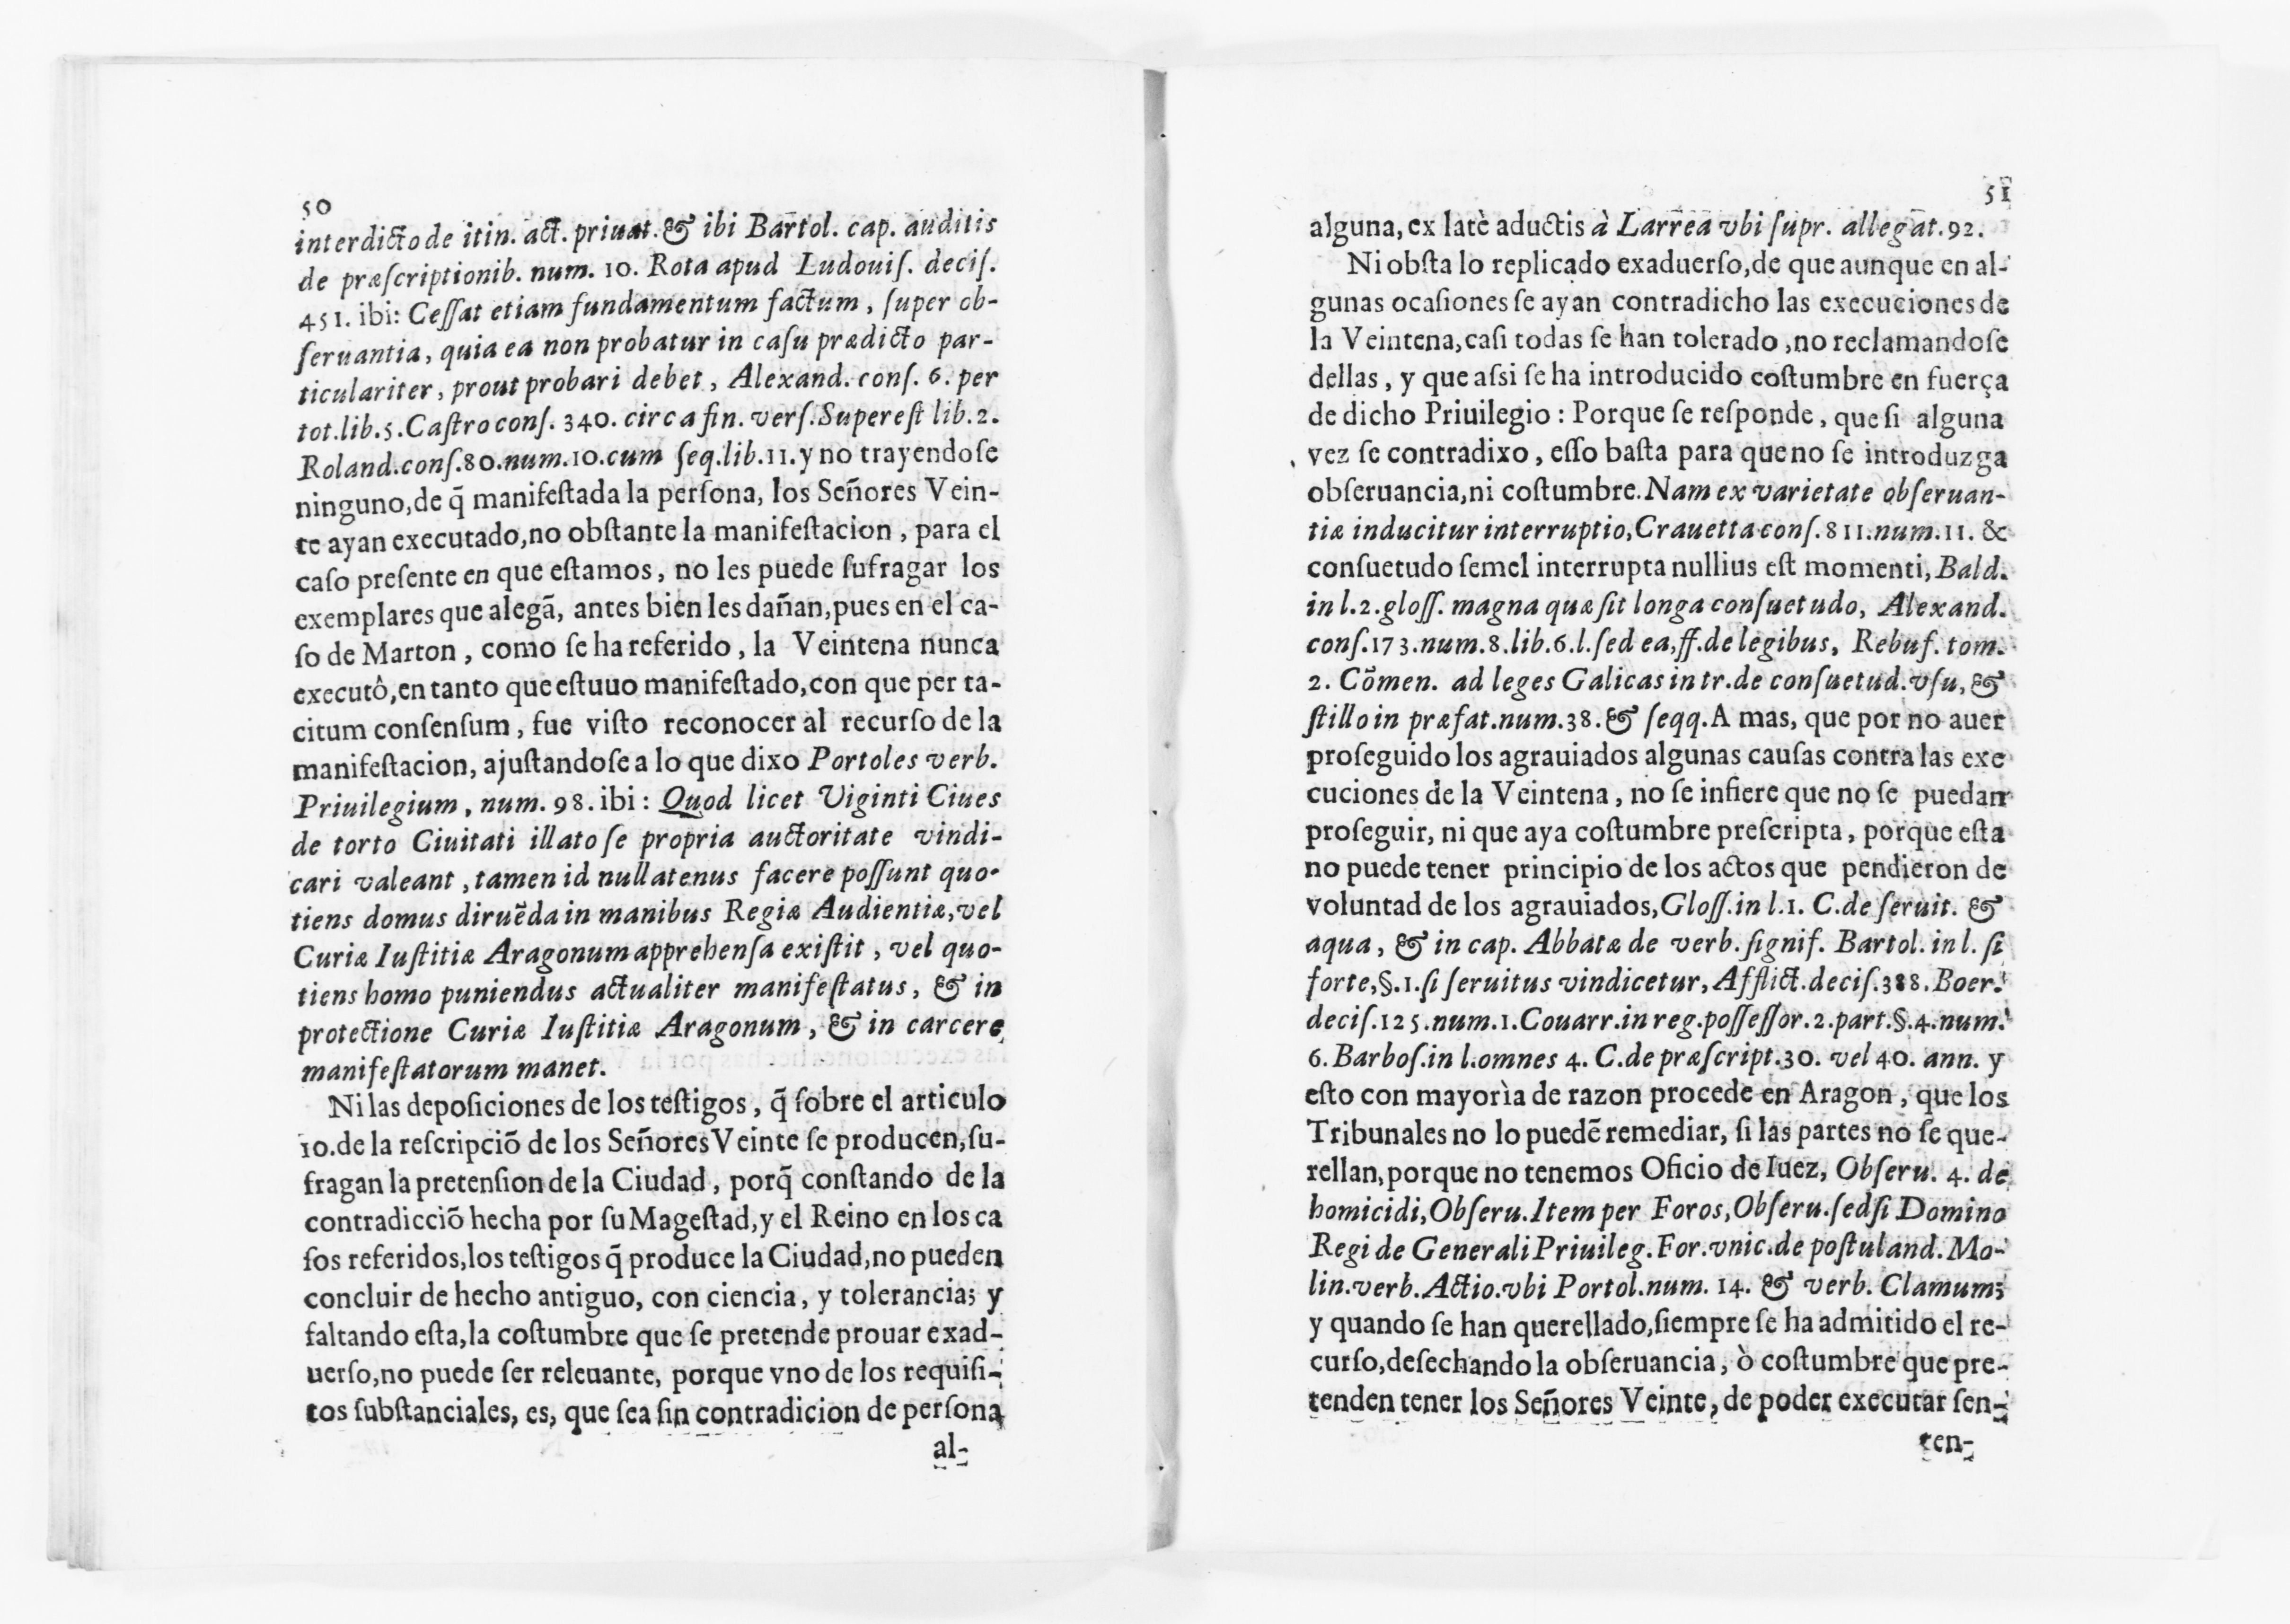 50
interdicto de itin. act. priuat. & ibi Bartol. cap. auditis
de præſcriptionib. num. 10. Rota apud Ludouiſ. deciſ.
451. ibi: Ceſſat etiam fundamentum factum, ſuper ob-
ſeruantia, quia ea non probatur in caſu prædicto par-
ticulariter, prout probari debet, Alexand. conſ. 6. per
tot.lib.5.Caſtro conſ. 340. circa fin. verſ. Supereſt lib.2.
Roland.conſ.80.num.10.cum ſeq.lib.11.y no trayendoſe
ninguno, de q̃ manifeſtada la perſona, los Señores Vein-
te ayan executado, no obſtante la manifeſtacion, para el
caſo preſente en que eſtamos, no les puede ſufragar los
exemplares que alegã, antes bien les dañan, pues en el ca-
ſo de Marton, como ſe ha referido, la Veintena nunca
executô, en tanto que eſtuuo manifeſtado, con que per ta-
citum conſenſum, fue viſto reconocer al recurſo de la
manifeſtacion, ajuſtandoſe a lo que dixo Portoles verb.
Priuilegium, num. 98. ibi: Quod licet Viginti Ciues
de torto Ciuitati illato ſe propria auctoritate vindi-
cari valeant, tamen id nullatenus facere poſſunt quo-
tiens domus diruẽda in manibus Regiæ Audientiæ, vel
Curiæ Iuſtitiæ Aragonum apprehenſa exiſtit, vel quo-
tiens homo puniendus actualiter manifeſtatus, & in
protectione Curiæ Iuſtitiæ Aragonum, & in carcere
manifeſtatorum manet.
Ni las depoſiciones de los teſtigos, q̃ ſobre el articulo
10.de la reſcripciõ de los Señores Veinte ſe producen, ſu-
fragan la pretenſion de la Ciudad, porq̃ conſtando de la
contradicciõ hecha por ſu Mageſtad, y el Reino en los ca
ſos referidos, los teſtigos q̃ produce la Ciudad, no pueden
concluir de hecho antiguo, con ciencia, y tolerancia; y
faltando eſta, la coſtumbre que ſe pretende prouar exad-
uerſo, no puede ſer releuante, porque vno de los requiſi-
tos ſubſtanciales, es, que ſea ſin contradicion de perſona
al-
51
alguna, ex latè aductis à Larrea vbi ſupr. allegat.92.
Ni obſta lo replicado exaduerſo, de que aunque en al-
gunas ocaſiones ſe ayan contradicho las execuciones de
la Veintena, caſi todas ſe han tolerado, no reclamandoſe
dellas, y que aſsi ſe ha introducido coſtumbre en fuerça
de dicho Priuilegio: Porque ſe reſponde, que ſi alguna
vez ſe contradixo, eſſo baſta para que no ſe introduzga
obſeruancia, ni coſtumbre. Nam ex varietate obſeruan-
tiæ inducitur interruptio, Crauetta conſ.811.num.11. &
conſuetudo ſemel interrupta nullius eſt momenti, Bald.
in l.2.gloſſ. magna quæ ſit longa conſuetudo, Alexand.
conſ.173.num.8.lib.6.l.ſed ea, ff.de legibus, Rebuf. tom.
2. Cõmen. ad leges Galicas in tr.de conſuetud.vſu, &
ſtillo in præfat.num.38. & ſeqq. A mas, que por no auer
proſeguido los agrauiados algunas cauſas contra las exe
cuciones de la Veintena, no ſe infiere que no ſe puedan
proſeguir, ni que aya coſtumbre preſcripta, porque eſta
no puede tener principio de los actos que pendieron de
voluntad de los agrauiados, Gloſſ.in l.1. C.de ſeruit. &
aqua, & in cap. Abbatæ de verb. ſignif. Bartol. in l. ſi
forte, §.1.ſi ſeruitus vindicetur, Afflict.deciſ.388. Boer.
deciſ.125.num.1.Couarr.in reg.poſſeſſor.2.part.§.4.num.
6. Barboſ.in l.omnes 4. C.de præſcript.30. vel 40. ann. y
eſto con mayorìa de razon procede en Aragon, que los
Tribunales no lo puedẽ remediar, ſi las partes no ſe que-
rellan, porque no tenemos Oficio de Iuez, Obſeru. 4. de
homicidi, Obſeru.Item per Foros, Obſeru.ſed ſi Domino
Regi de Generali Priuileg. For.vnic.de poſtuland. Mo-
lin.verb. Actio.vbi Portol.num. 14. & verb. Clamum;
y quando ſe han querellado, ſiempre ſe ha admitido el re-
curſo, deſechando la obſeruancia, ò coſtumbre que pre-
tenden tener los Señores Veinte, de poder executar ſen-
ten-